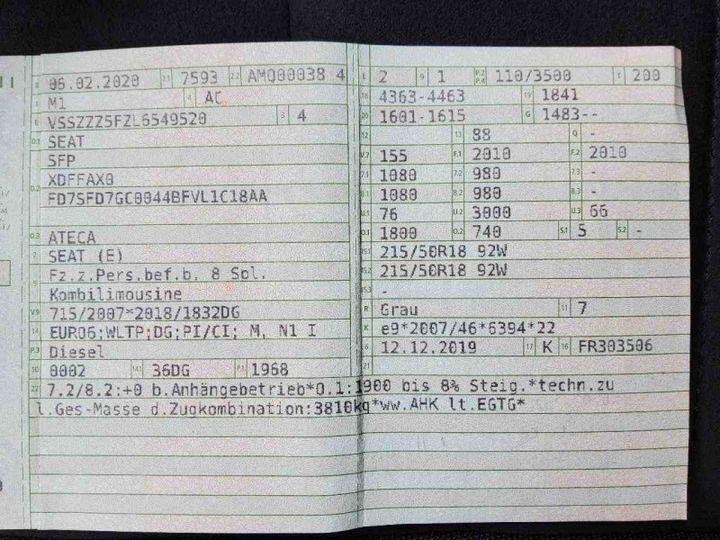 B 06.02.2020 2.1 7593 2.2 AMQ00038 4
J M1 4 AC
E VSSZZZ5FZL6549520 3 4
D.1 SEAT
SFP
D.2 XDFFAX0
FD7SFD7GC0044BFVL1C18AA
D.3 ATECA
2 SEAT (E)
5 Fz.z.Pers.bef.b. 8 Spl.
Kombilimousine
V.9 715/2007*2018/1832DG
14 EURO6;WLTP;DG;PI/CI; M, N1 I
P.3 Diesel
10 0002 14.1 36DG P.1 1968
L 2 9 1 P.2 P.4 110/3500 T 200
18 4363-4463 19 1841
20 1601-1615 G 1483--
12 13 88 Q -
V.7 155 F.1 2010 F.2 2010
7.1 1080 7.2 980 7.3 -
8.1 1080 8.2 980 8.3 -
U.1 76 U.2 3000 U.3 66
O.1 1800 O.2 740 S.1 5 S.2 -
15.1 215/50R18 92W
15.2 215/50R18 92W
15.3 -
R Grau 11 7
K e9*2007/46*6394*22
6 12.12.2019 17 K 16 FR303506
21
22 7.2/8.2:+0 b.Anhängebetrieb*O.1:1900 bis 8% Steig.*techn.zu
l.Ges-Masse d.Zugkombination:3810kg*ww.AHK lt.EGTG*